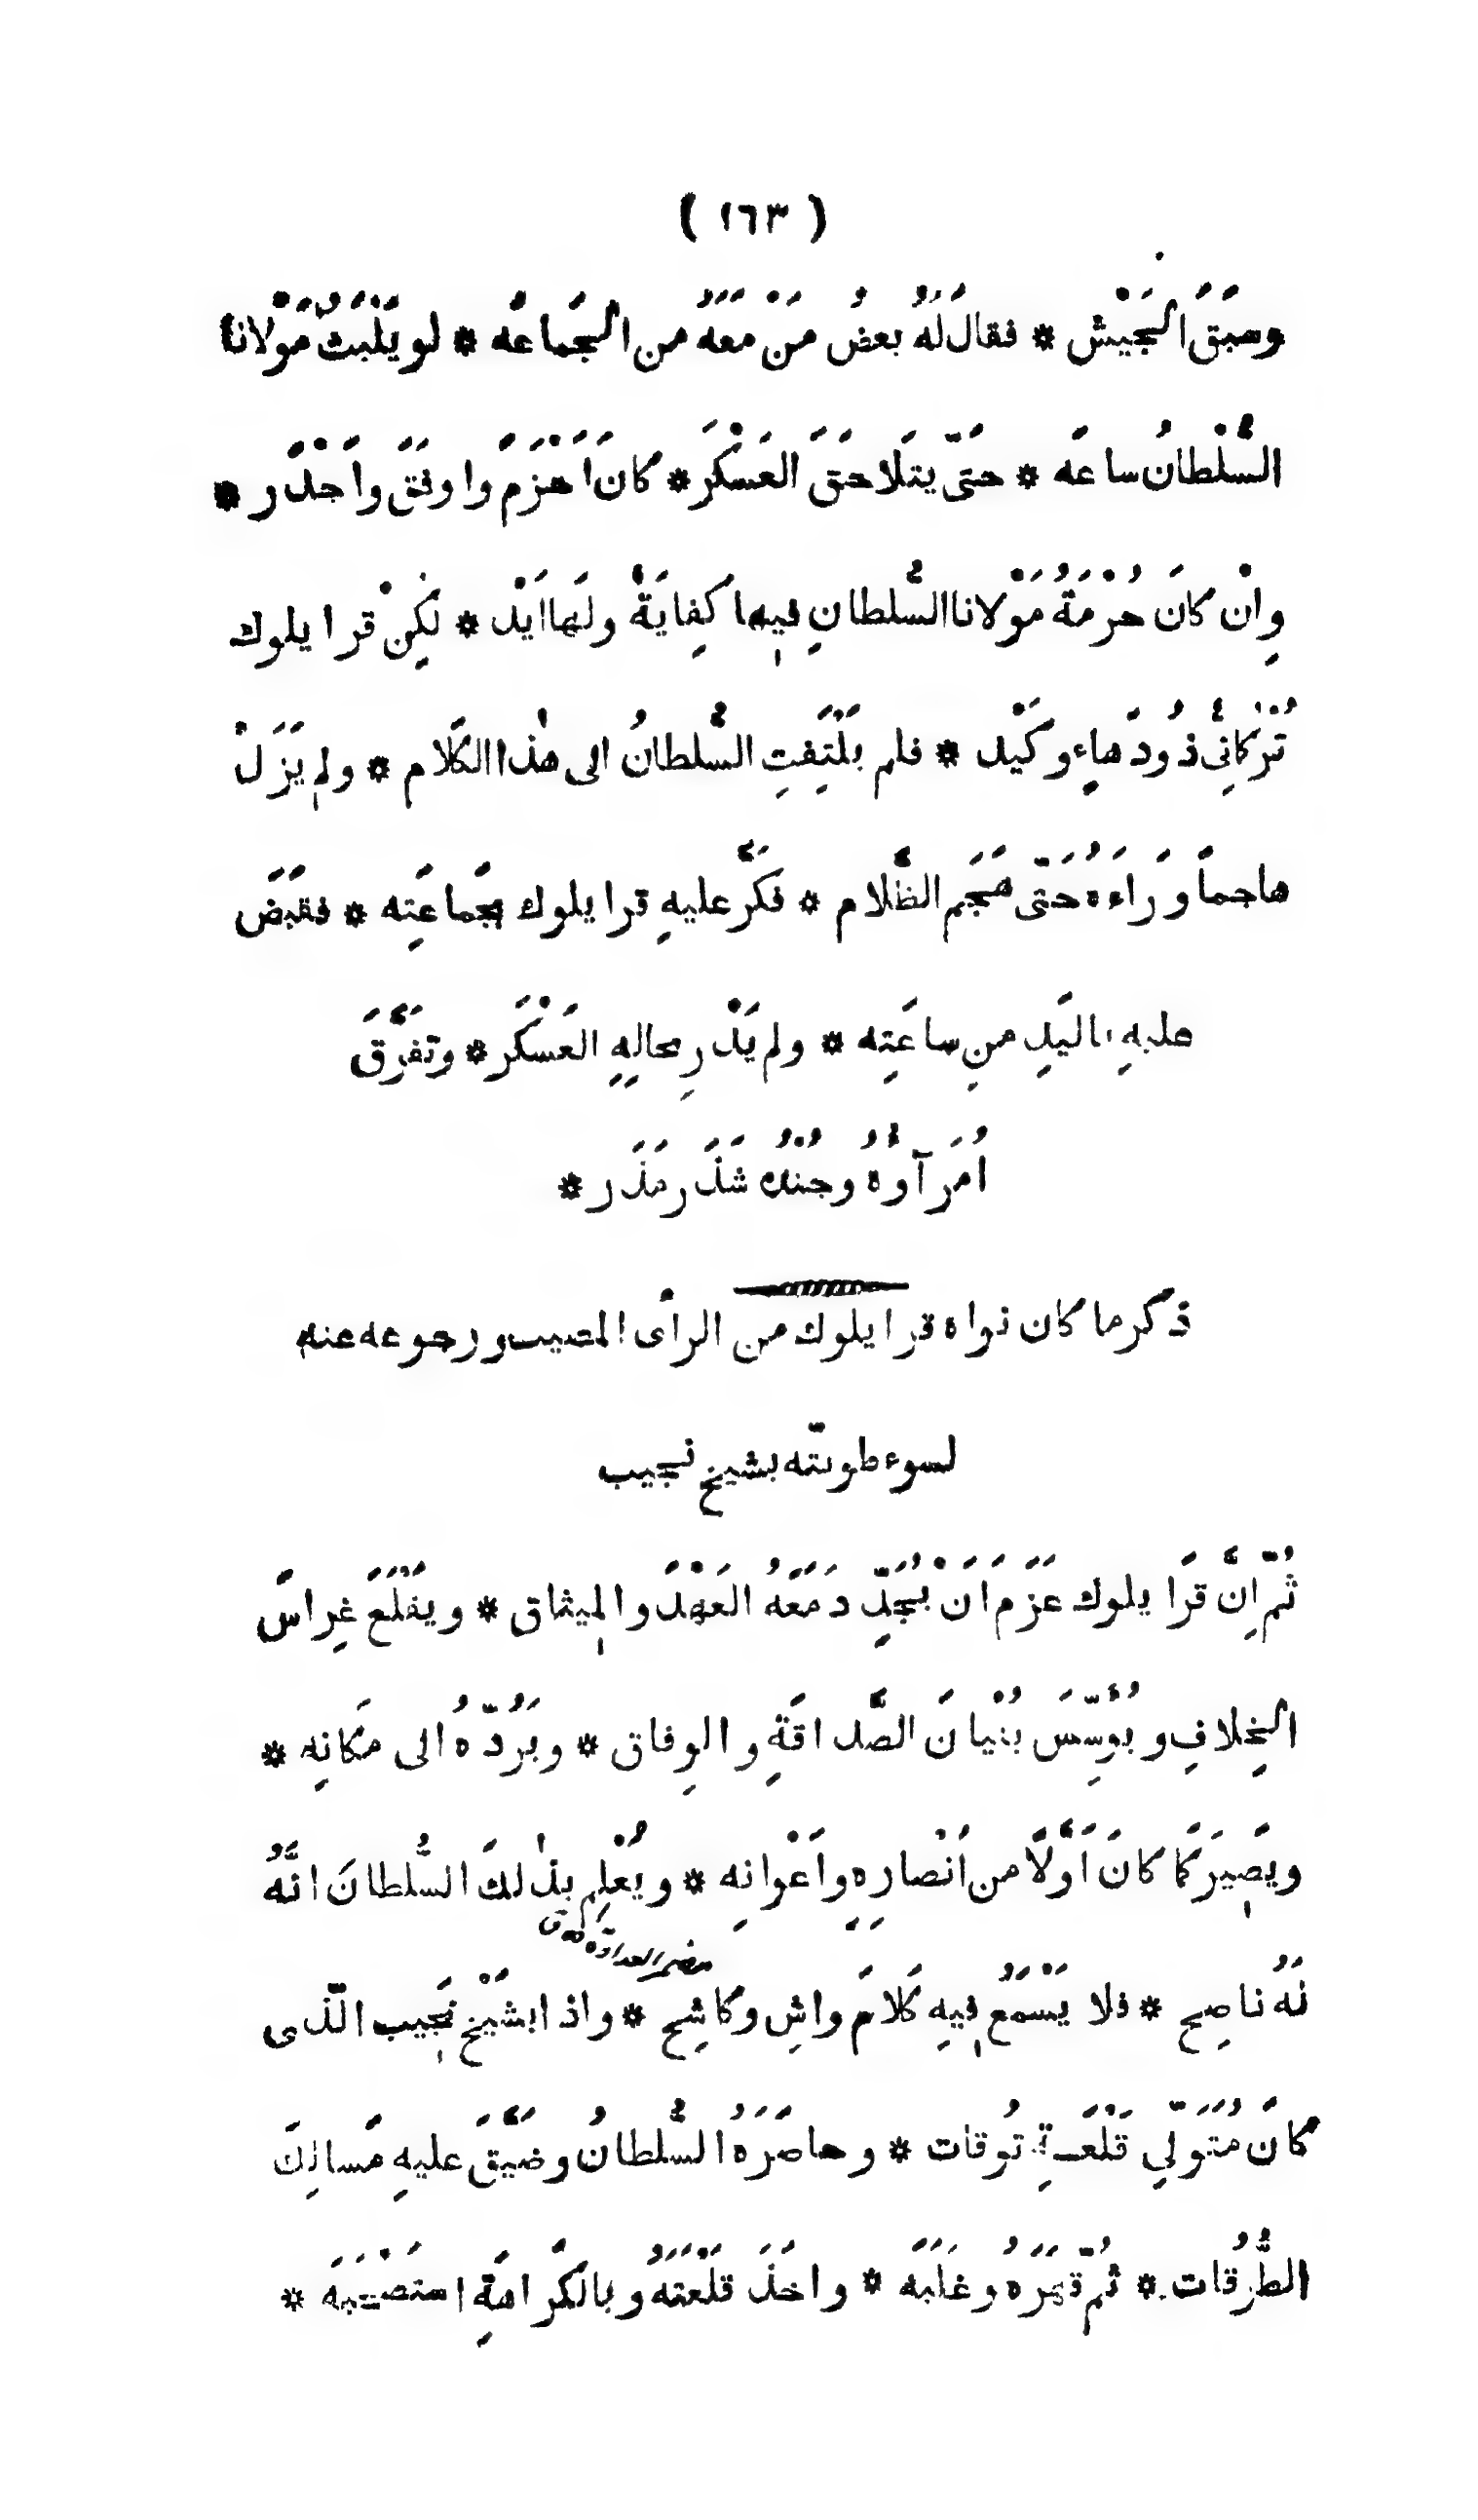 ( ١٦٣ )
وسَبَقَ الجَيْش * فقال لَهُ بعضُ مَنْ مَعَهُ من الجَماعَه * لو يَلْبَثُ مَوْلانا
السُّلْطانُ ساعَه * حتّى يتَلاحَقَ العَسْكَر * كان اَحْزَمَ واوفَقَ واَجْدَر *
وِانْ كانَ حُرْمَةُ مَوْلانا السُّلطانِ فيها كَفِايَةٌ ولَها اَيْد * لكِنْ قرا يلوك
تُرْكمانِىٌّ ذُو دَهاءٍ وكَيْد * فلم يَلْتَفِتِ السُّلطانُ الى هٰذا الكَلام * ولم يَزَلْ
هاجماً وَراءَهُ حَتّى هَجَم الظَّلام * فكَرَّ عليهِ قرا يلوك بجَماعَتِه * فقَبَضَ
عليهِ باليَدِ من ساعَتِه * ولم يَدْرِ بحالِهِ العَسْكَر * وتَفَرَّقَ
اُمَرآوُهُ وجُنْدُه شَذَر مَذَر *
ذكر ما كان نواه قرا يلوك من الرأى المصيب ورجوعه عنه
لسوء طويّته بشيخ نجيب
ثُمّ اِنَّ قَرا يلوك عَزَمَ اَنْ يُجَدِّدَ مَعَهُ العَهْدَ والمِيثاق * ويَقْلَعَ غِراسَ
الخِلافِ ويُؤسِّسَ بُنْيانَ الصَّداقَةِ والوِفاق * ويَرُدّهُ الى مَكانِه *
ويَصِيرَ كَما كانَ اَوَّلاً من اَنْصارِهِ واَعْوانِهِ * ويُعْلِم بذٰلكَ السُّلطانَ انَّهُ
مضمر العداوة ق
لَهُ ناصِح * فلا يَسْمَعُ فيهِ كَلامَ واشٍ وكاشِح * واذا بشَيْخ نَجِيب الّذى
كانَ مُتَوَلِّي قَلْعَةِ تُوقات * وحاصَرَهُ السُّلطانُ وضَيَّقَ عليهِ مَسالِكَ
الطُّرقات * ثُمّ قَهَرَهُ وغَلَبَه * واخَذَ قَلْعَتَهُ وبالكَراهَةِ استَصْحَبَه *